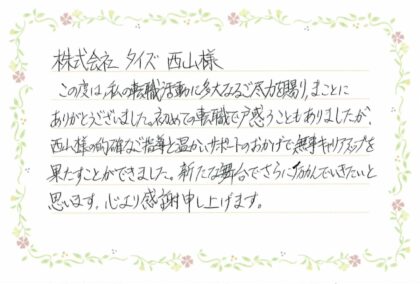 株式会社 タイズ 西山様
この度は、私の転職活動に多大なるご尽力を賜り、まことに
ありがとうございました。初めての転職で戸惑うこともありましたが、
西山様の的確なご指導と温かいサポートのおかげで無事キャリアアップを
果たすことができました。新たな舞台でさらに励んでいきたいと
思います。心より感謝申し上げます。